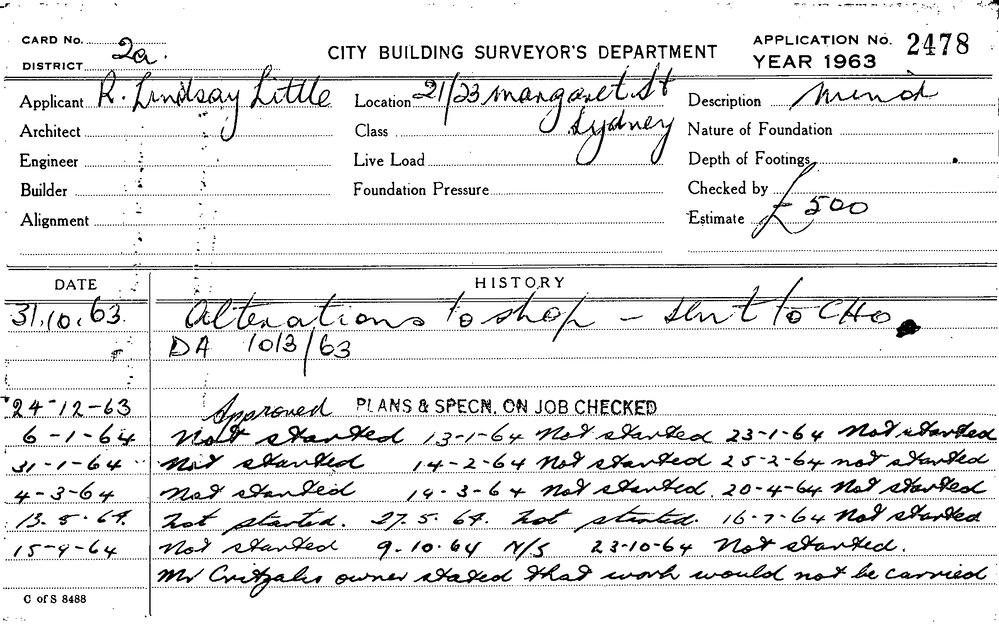 CARD No. CITY BUILDING SURVEYOR'S DEPARTMENT APPLICATION No. 2478
DISTRICT 2a. YEAR 1963
Applicant R. Lindsay Little Location 21/23 Margaret St Description
Architect Class Sydney Nature of Foundation
Engineer Live Load Depth of Footings
Builder Foundation Pressure Checked by
Alignment Estimate £500
DATE HISTORY
31.10.63. Alterations to shop - sent to CHO
DA 1013/63
24-12-63 Approved PLANS & SPECN. ON JOB CHECKED
6-1-64 Not started 13-1-64 Not started 23-1-64 Not started
31-1-64 Not started 14-2-64 Not started 25-2-64 not started
4-3-64 Not started 19-3-64 Not started. 20-4-64 Not started
13.5.64. not started. 27.5.64. not started. 16-7-64 Not started
15-9-64 Not started 9.10.64 N/S 23-10-64 Not started.
Mr Critzalis owner stated that work would not be carried
C of S 8488